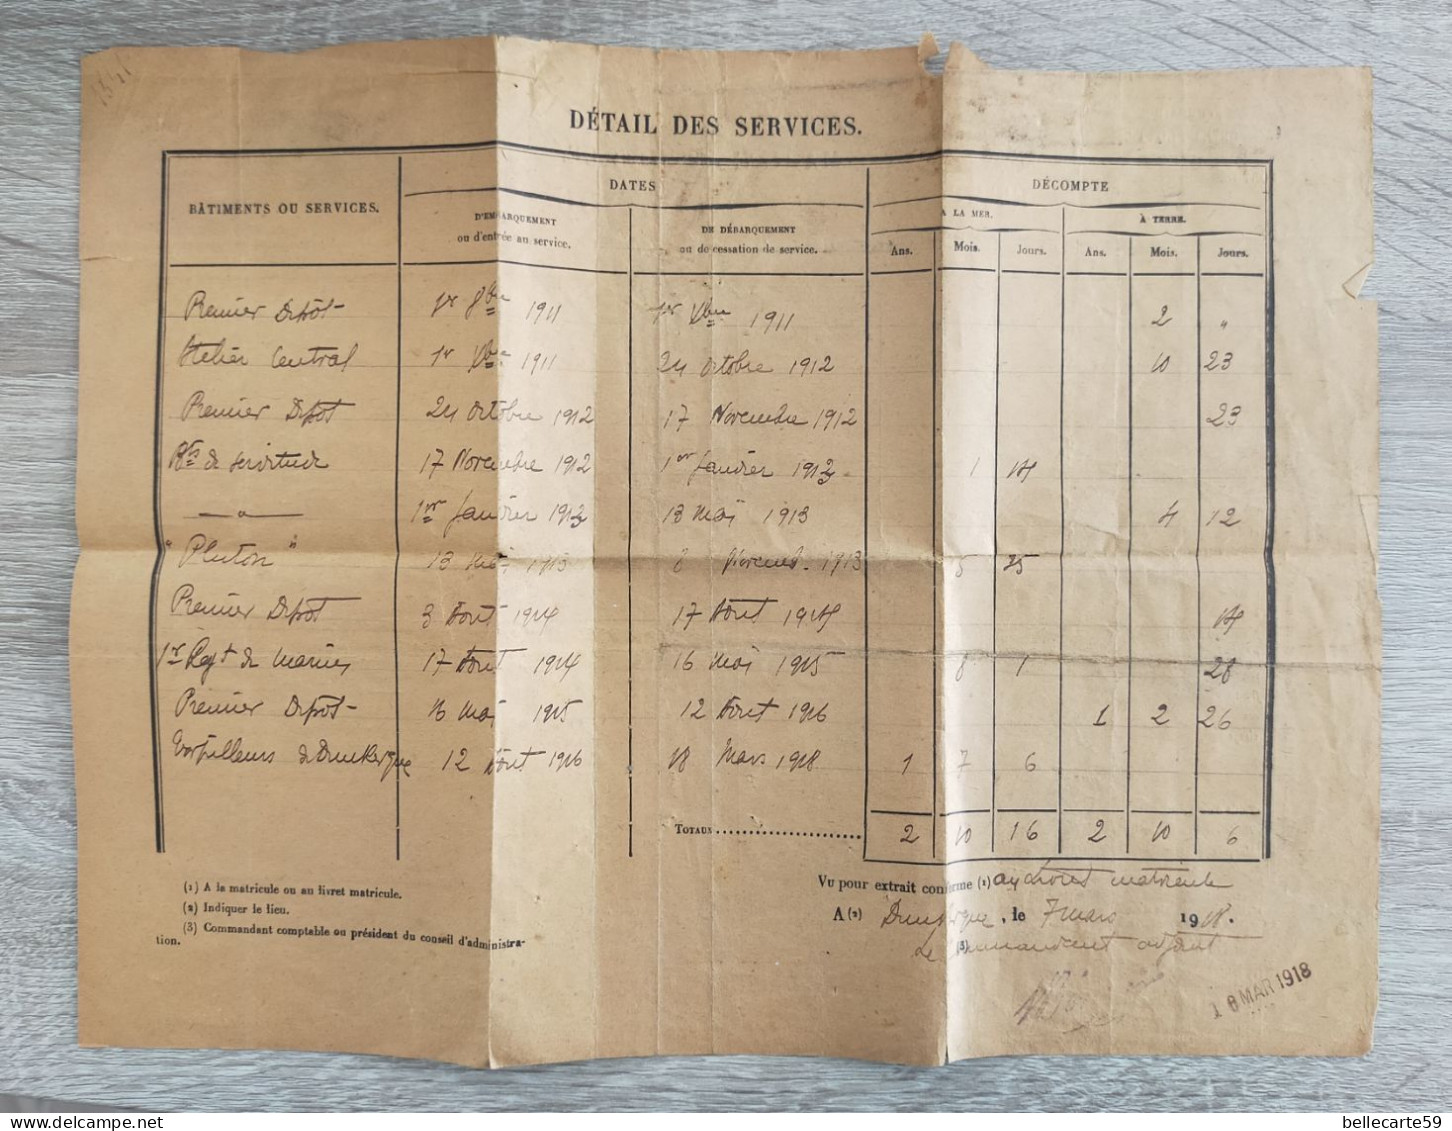 DÉTAIL DES SERVICES.
BÂTIMENTS OU SERVICES. DATES DÉCOMPTE
D'EMBARQUEMENT ou d'entrée au service. DE DÉBARQUEMENT ou de cessation de service. A LA MER. À TERRE.
Ans. Mois. Jours. Ans. Mois. Jours.
Premier Dépôt 1er 8bre 1911 1er Xbre 1911 2 "
Atelier Central 1er Xbre 1911 24 Octobre 1912 10 23
Premier Dépôt 24 Octobre 1912 17 Novembre 1912 23
Bts de servitude 17 Novembre 1912 1er Janvier 1913 1 14
—"— 1er Janvier 1913 13 Mai 1913 4 12
"Pluton" 13 Mai 1913 8 Novemb. 1913 5 25
Premier Dépôt 3 Août 1914 17 Août 1914 14
1er Regt de marins 17 Août 1914 16 Mai 1915 8 1 28
Premier Dépôt 16 Mai 1915 12 Août 1916 1 2 26
Torpilleurs de Dunkerque 12 Août 1916 18 Mars 1918 1 7 6
TOTAUX 2 10 16 2 10 6
(1) A la matricule ou au livret matricule.
(2) Indiquer le lieu.
(3) Commandant comptable ou président du conseil d'administra-
tion.
Vu pour extrait conforme (1) au livret matricule
A (2) Dunkerque, le 7 mars 1918.
Le (3) Commandant adjoint
18 MAR 1918
bellecarte59